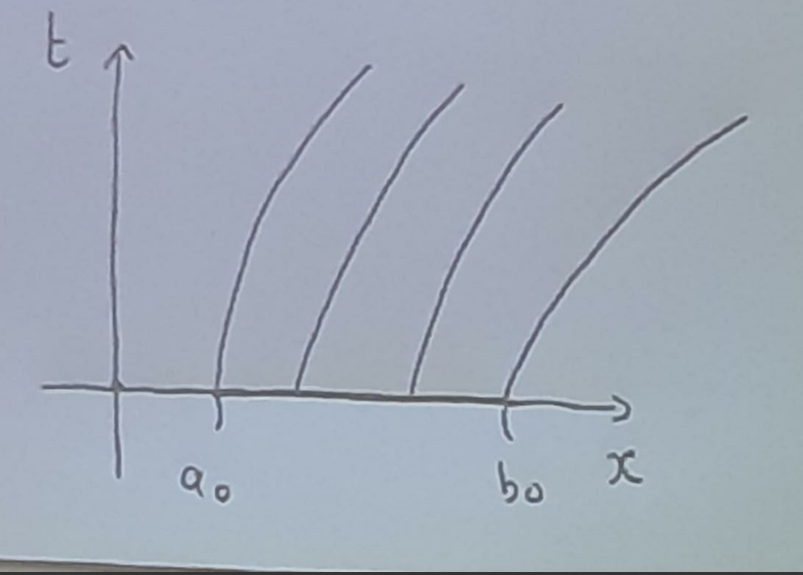 t
a₀ b₀ x